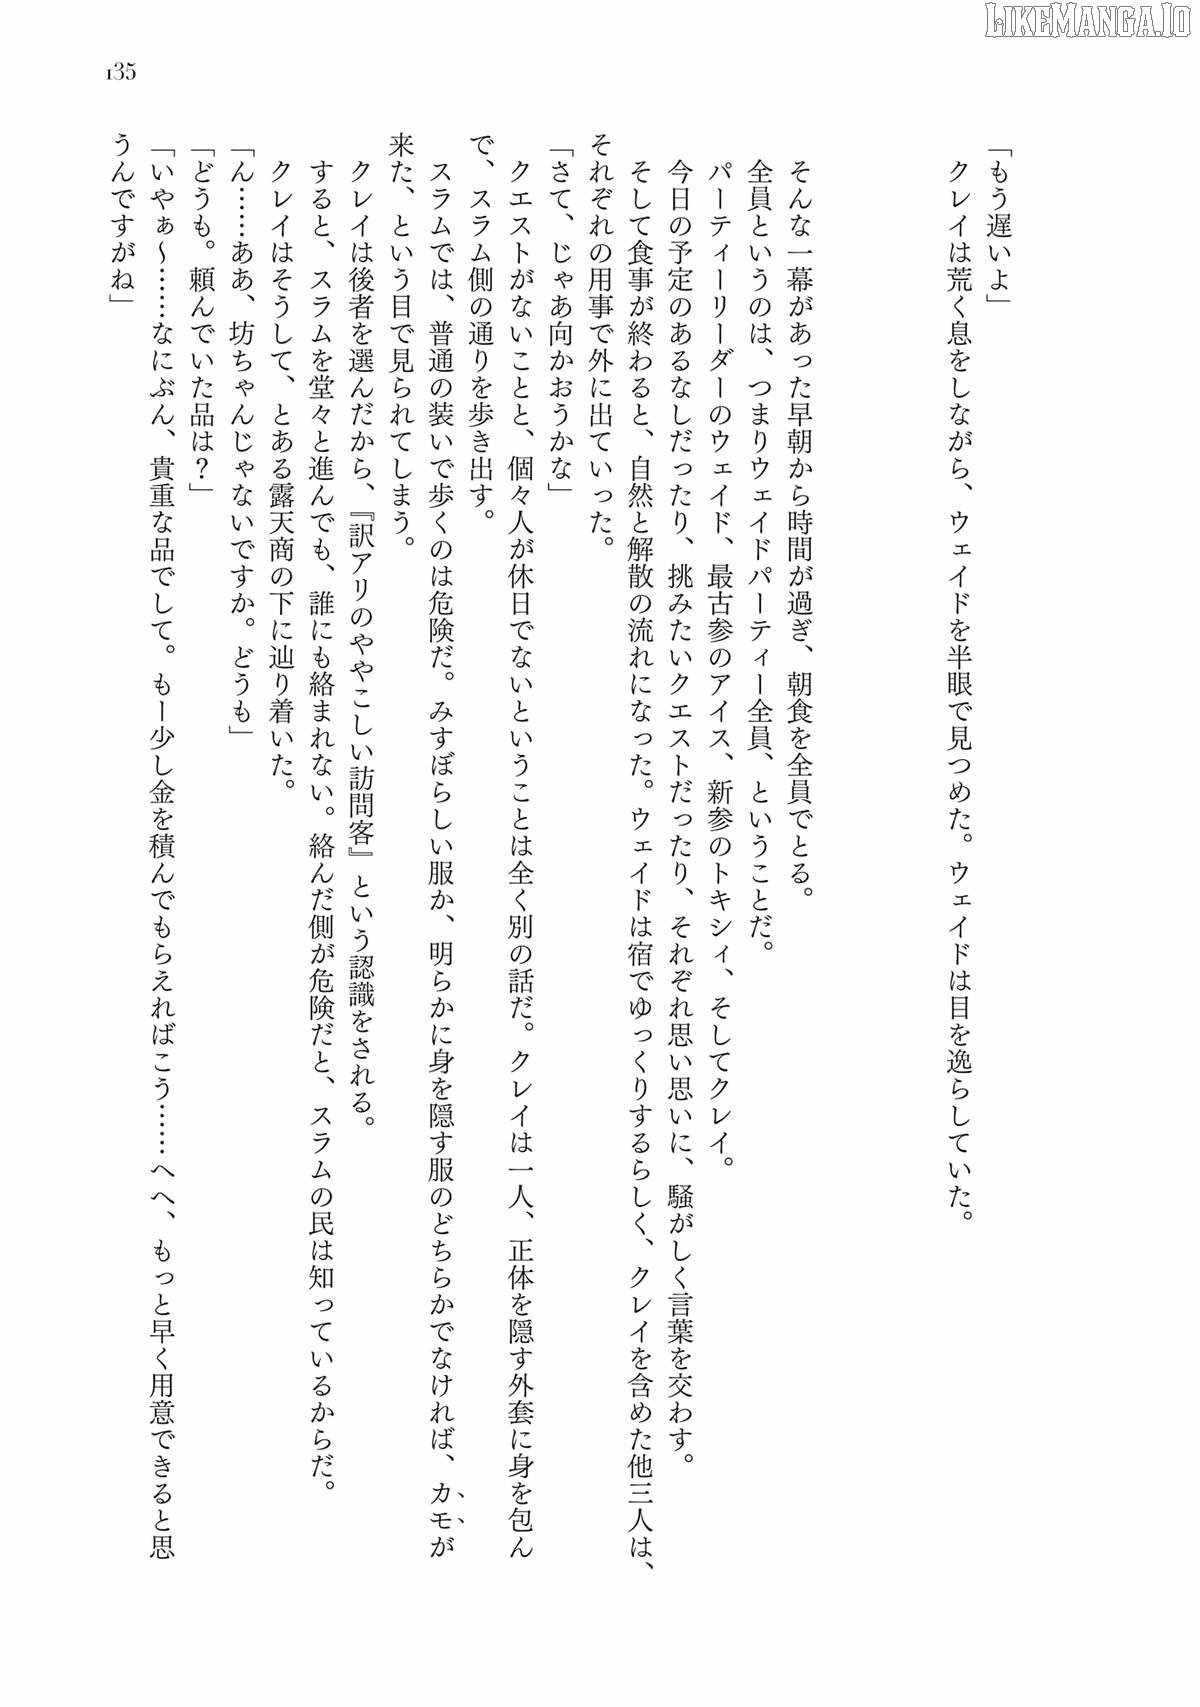 LIKEMANGA.IO
135
「もう遅いよ」
クレイは荒く息をしながら、ウェイドを半眼で見つめた。ウェイドは目を逸らしていた。
そんな一幕があった早朝から時間が過ぎ、朝食を全員でとる。
全員というのは、つまりウェイドパーティー全員、ということだ。
パーティーリーダーのウェイド、最古参のアイス、新参のトキシィ、そしてクレイ。
今日の予定のあるなしだったり、挑みたいクエストだったり、それぞれ思い思いに、騒がしく言葉を交わす。
そして食事が終わると、自然と解散の流れになった。ウェイドは宿でゆっくりするらしく、クレイを含めた他三人は、
それぞれの用事で外に出ていった。
「さて、じゃあ向かおうかな」
クエストがないことと、個々人が休日でないということは全く別の話だ。クレイは一人、正体を隠す外套に身を包ん
で、スラム側の通りを歩き出す。
スラムでは、普通の装いで歩くのは危険だ。みすぼらしい服か、明らかに身を隠す服のどちらかでなければ、カモが
来た、という目で見られてしまう。
クレイは後者を選んだから、『訳アリのややこしい訪問客』という認識をされる。
すると、スラムを堂々と進んでも、誰にも絡まれない。絡んだ側が危険だと、スラムの民は知っているからだ。
クレイはそうして、とある露天商の下に辿り着いた。
「ん……ああ、坊ちゃんじゃないですか。どうも」
「どうも。頼んでいた品は？」
「いやぁ～……なにぶん、貴重な品でして。もー少し金を積んでもらえればこう……へへ、もっと早く用意できると思
うんですがね」